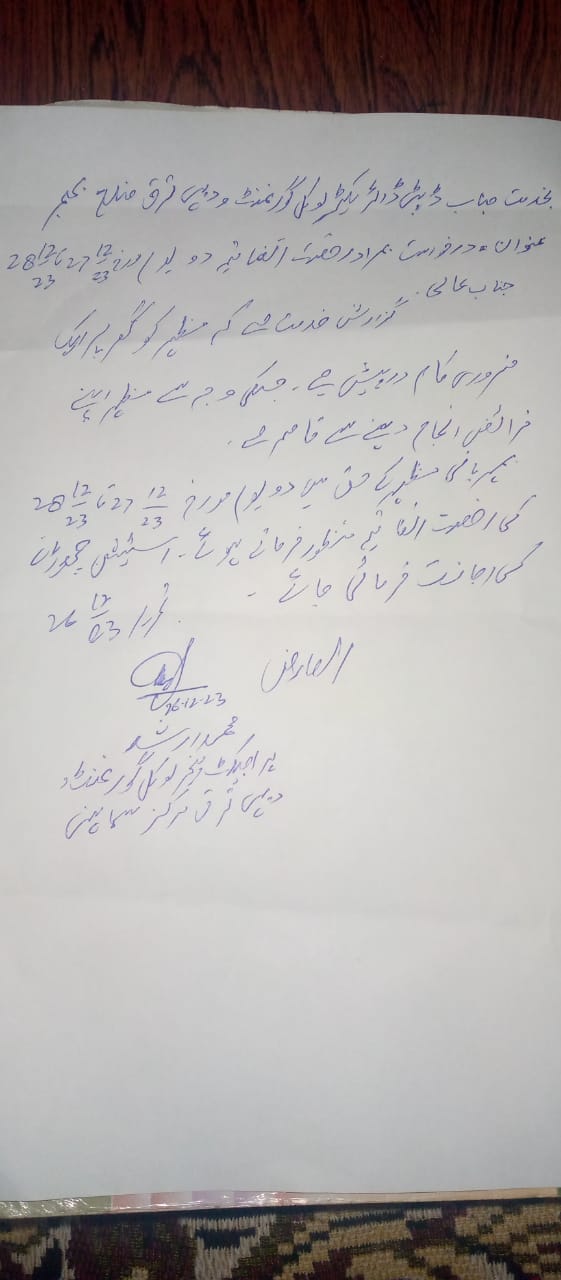 بخدمت جناب ڈپٹی ڈائریکٹر لوکل گورنمنٹ و دیہی ترقی ضلع بھمبر
عنوان:- درخواست بمراد رخصت اتفاقیہ دو یوم مورخہ 27 12/23 تا 28 12/23
جناب عالی
گزارش خدمت ہے کہ مظہر کو گھر پر ایک
ضروری کام درپیش ہے۔ جسکی وجہ سے مظہر اپنے
فرائض انجام دینے سے قاصر ہے۔
مہربانی مظہر کے حق میں دو یوم مورخہ 27 12/23 تا 28 12/23
کی رخصت اتفاقیہ منظور فرماتے ہوئے۔ اسٹیشن چھوڑنے
کی اجازت فرمائی جائے۔ تحریر 26 12/23
العارض
26-12-23
محمد ارشد
پراجیکٹ منیجر لوکل گورنمنٹ و
دیہی ترقی مرکز سماہنی